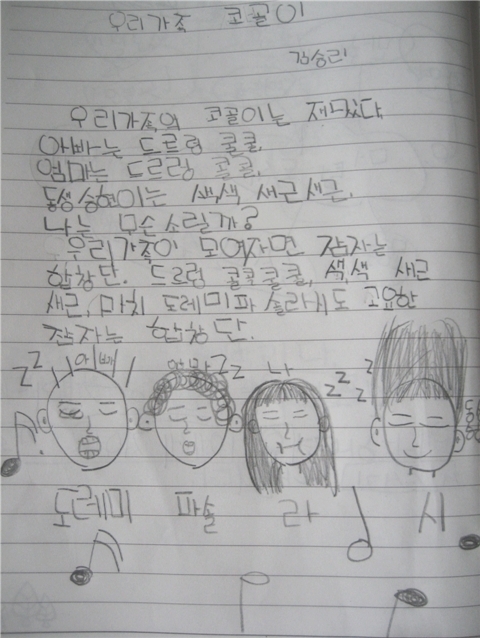 우리가족 코골이
김승리
우리가족의 코골이는 재밌다.
아빠는 드르렁 쿨쿨.
엄마는 드르렁 콜콜.
동생 승현이는 색색 새근새근.
나는 무슨소릴까?
우리가족이 모여자면 잠자는
합창단. 드르렁 콜콜쿨쿨, 색색 새근
새근, 마치 도레미파 솔라시도 고요한
잠자는 합창단.
zz 아빠 엄마 zz 나 zzz z
도레미 파솔 라 시